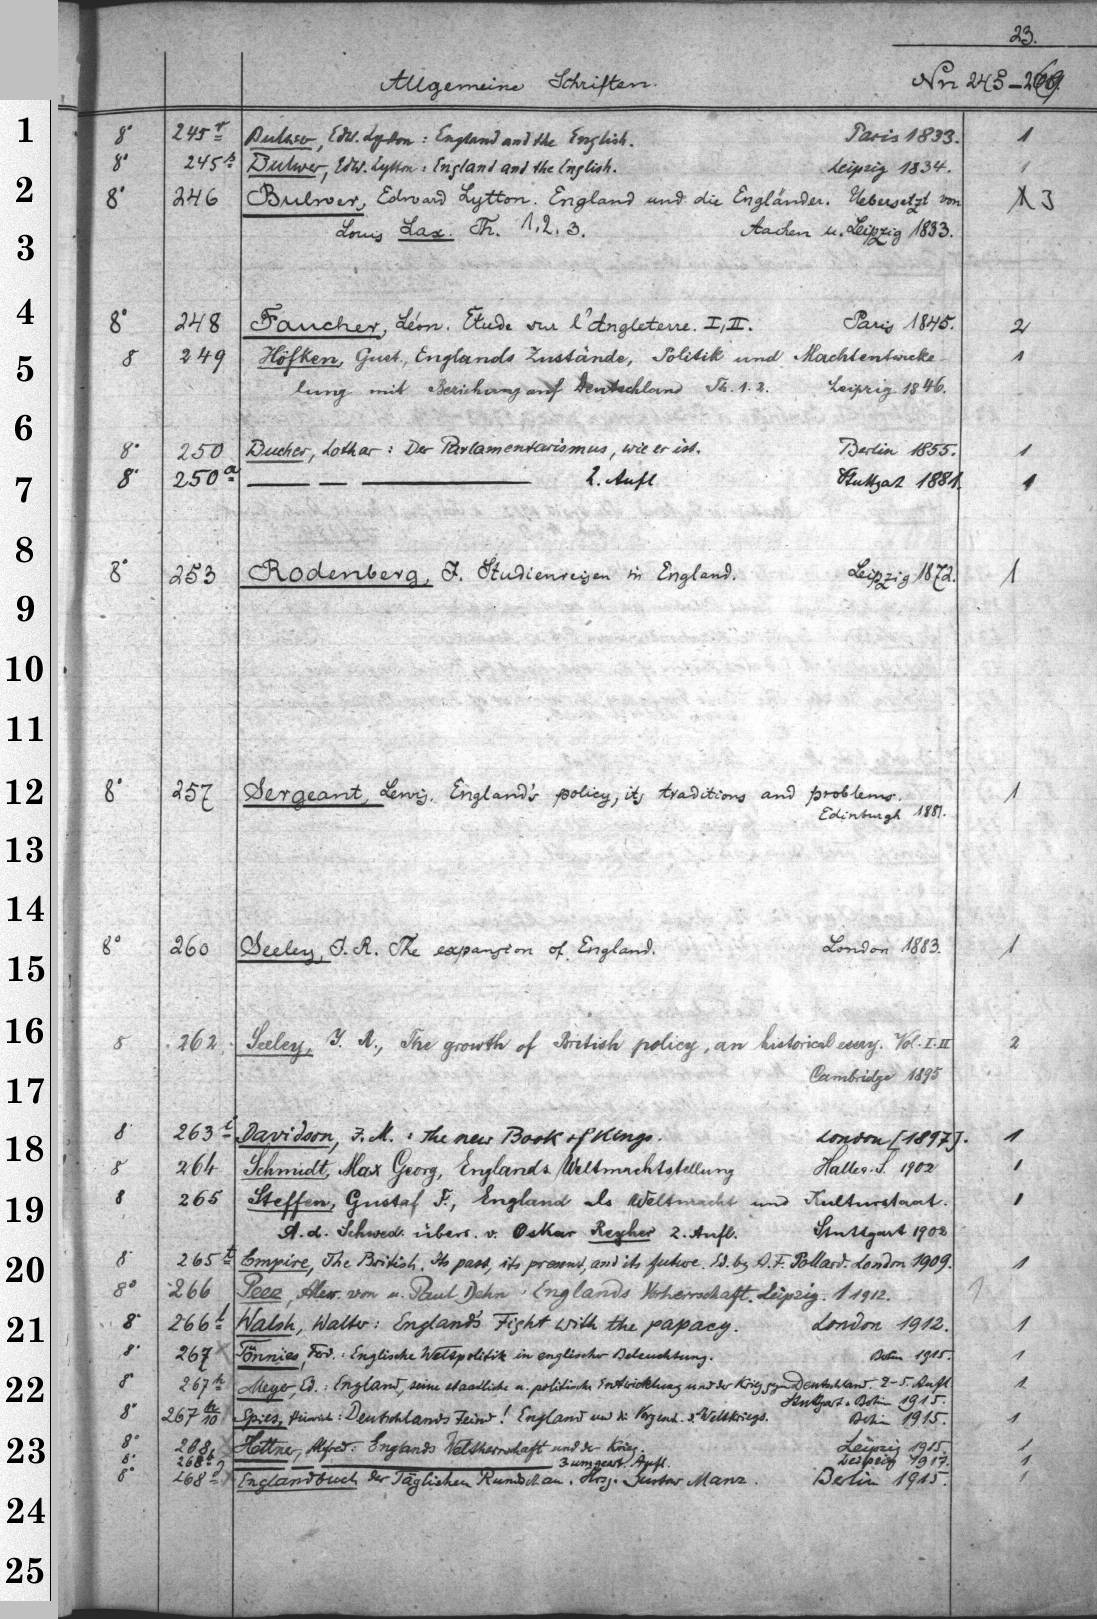 23.
Allgemeine Schriften. Nrr 245-269.
1 8° 245r Bulwer, Edw. Lytton: England and the English. Paris 1833. 1
8° 245s Bulwer, Edw. Lytton: England and the English. Leipzig 1834. 1
2 8° 246 Bulwer, Edward Lytton. England und die Engländer. Uebersetzt von 3
Louis Lax. Th. 1.2.3. Aachen u. Leipzig 1833.
3
4 8° 248 Faucher, Léon. Etude sur l'Angleterre. I, II. Paris 1845. 2
5 8 249 Höfken, Gust., Englands Zustände, Politik und Machtentwicke-
lung mit Beziehung auf Deutschland Th. 1.2. Leipzig 1846. 1
6 8° 250 Bucher, Lothar: Der Parlamentarismus, wie er ist. Berlin 1855. 1
7 8° 250a 2. Aufl Stuttgart 1881. 1
8 8° 253 Rodenberg, J. Studienreisen in England. Leipzig 1872. 1
9
10
11
12 8° 257 Sergeant, Lewis. England's policy, its traditions and problems. 1
Edinburgh 1881.
13
14
8° 260 Seeley, J. R. The expansion of England. London 1883. 1
15
16 8 262 Seeley, J. R., The growth of British policy, an historical essay. Vol. I.II 2
Cambridge 1895
17
18 8 263i Davidson, J. M.: The new Book of Kings. London [1897]. 1
8 264 Schmidt, Max Georg, Englands Weltmachtstellung Halle a. S. 1902 1
19 8 265 Steffen, Gustaf F., England als Weltmacht und Kulturstaat. 1
A. d. Schwed. übers. v. Oskar Reyher 2. Aufl. Stuttgart 1902
20 8 265t Empire, The British. Its past, its present, and its future. Ed. by A. F. Pollard. London 1909. 1
8° 266 Peez, Alex. von u. Paul Dehn: Englands Vorherrschaft. Leipzig. 1 1912. 1
21 8° 266t Walsh, Walter: England's Fight with the papacy. London 1912. 1
8° 267 Tönnies, Ferd.: Englische Weltpolitik in englischer Beleuchtung. Berlin 1915. 1
22 8° 267h Meyer, Ed.: England, seine staatliche u. politische Entwicklung und der Krieg gegen Deutschland. 2-5. Aufl
Stuttgart u. Berlin 1915. 1
8° 267h/10 Spies, Heinrich: Deutschlands Feind! England und die Vorgesch. d. Weltkriegs. Berlin 1915. 1
23 8° 268 Hettner, Alfred: Englands Weltherrschaft und der Krieg. Leipzig 1915. 1
8° 268a 3 umgearb. Aufl. Leipzig 1917. 1
8° 268 Englandbuch der Täglichen Rundschau. Hrsg. Gustav Manz. Berlin 1915. 1
24
25